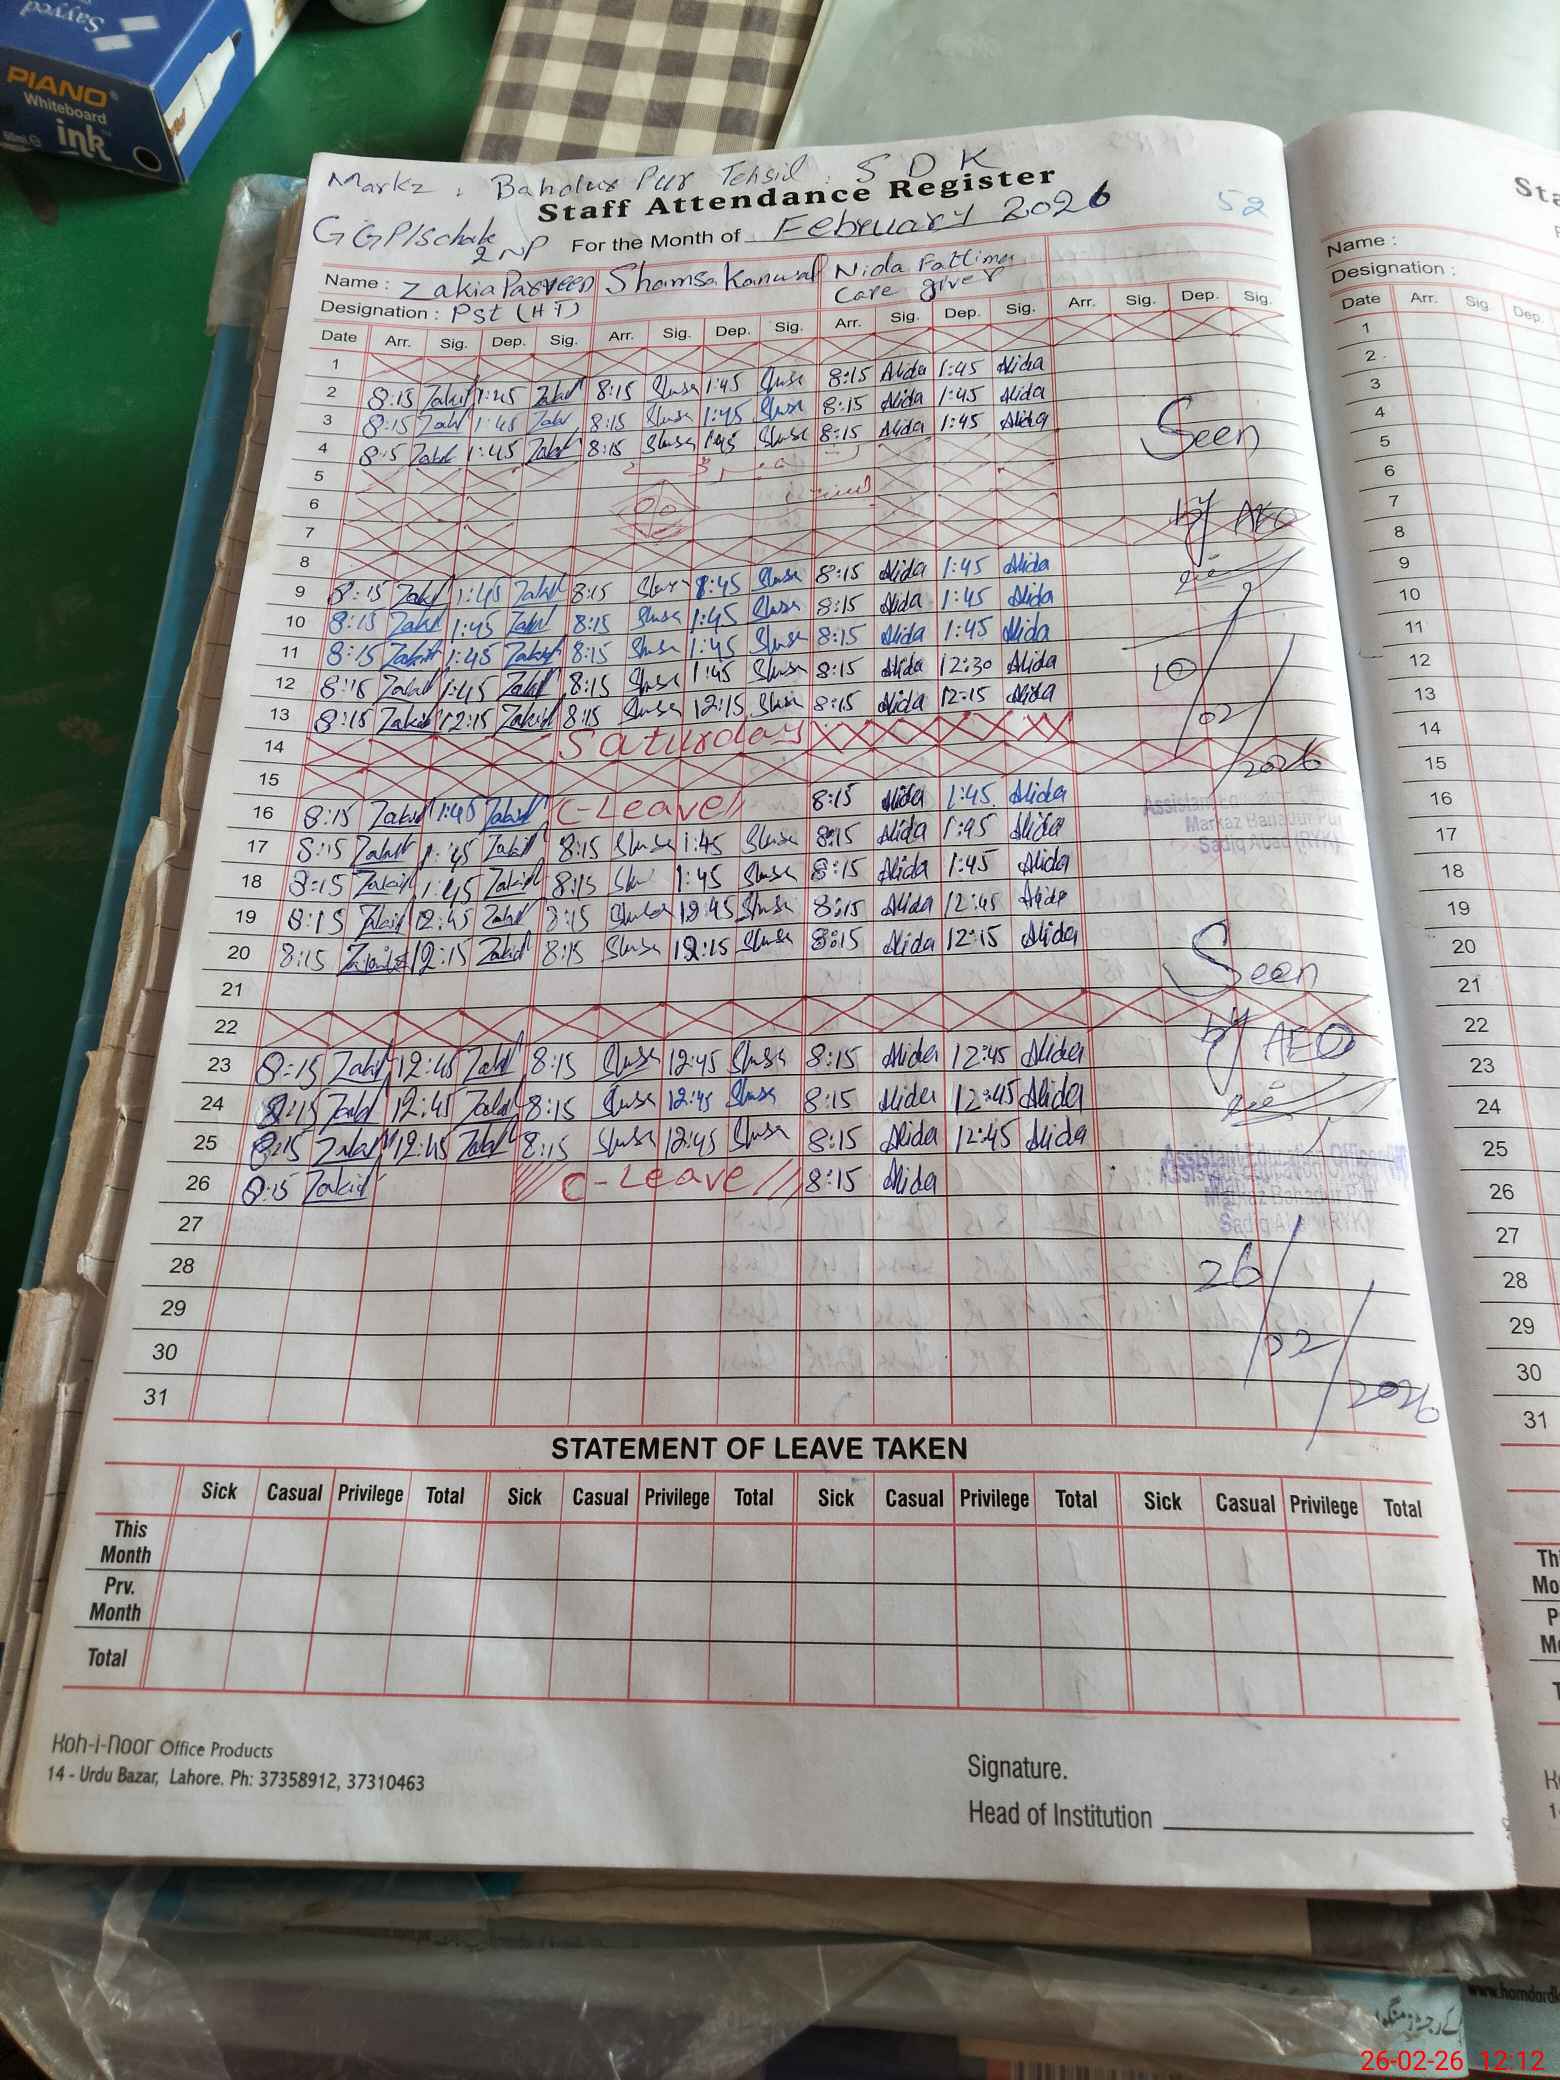 Sayyed
PIANO
Whiteboard
ink
Markz : Bahadur Pur Tehsil : S D K
Staff Attendance Register
52
GGP/Schak 2 NP
For the Month of February 2026
Name : Zakia Parveen Shamsa Kanwal Nida Fattima
Designation : Pst (HT) Care giver
Date Arr. Sig. Dep. Sig. Arr. Sig. Dep. Sig. Arr. Sig. Dep. Sig. Arr. Sig. Dep. Sig.
1
2 8:15 Zakia 1:45 Zakia 8:15 Shmsa 1:45 Shmsa 8:15 Nida 1:45 Nida
3 8:15 Zakia 1:45 Zakia 8:15 Shmsa 1:45 Shmsa 8:15 Nida 1:45 Nida
4 8:15 Zakia 1:45 Zakia 8:15 Shmsa 1:45 Shmsa 8:15 Nida 1:45 Nida
Seen
5
6
7
by AEO
8
9 8:15 Zakia 1:45 Zakia 8:15 Shmsa 1:45 Shmsa 8:15 Nida 1:45 Nida
10 8:15 Zakia 1:45 Zakia 8:15 Shmsa 1:45 Shmsa 8:15 Nida 1:45 Nida
11 8:15 Zakia 1:45 Zakia 8:15 Shmsa 1:45 Shmsa 8:15 Nida 1:45 Nida
12 8:15 Zakia 1:45 Zakia 8:15 Shmsa 1:45 Shmsa 8:15 Nida 12:30 Nida
13 8:15 Zakia 12:15 Zakia 8:15 Shmsa 12:15 Shmsa 8:15 Nida 12:15 Nida
10/02/2026
14 Saturday
15
16 8:15 Zakia 1:45 Zakia C-Leave 8:15 Nida 1:45 Nida
Markaz Bahadur Pur
Sadiq Abad (RYK)
17 8:15 Zakia 1:45 Zakia 8:15 Shmsa 1:45 Shmsa 8:15 Nida 1:45 Nida
18 8:15 Zakia 1:45 Zakia 8:15 1:45 Shmsa 8:15 Nida 1:45 Nida
19 8:15 Zakia 12:45 Zakia 8:15 Shmsa 12:45 Shmsa 8:15 Nida 12:45 Nida
20 8:15 Zakia 12:15 Zakia 8:15 Shmsa 12:15 Shmsa 8:15 Nida 12:15 Nida
Seen
21
22
by AEO
23 8:15 Zakia 12:45 Zakia 8:15 Shmsa 12:45 Shmsa 8:15 Nida 12:45 Nida
24 8:15 Zakia 12:45 Zakia 8:15 Shmsa 12:45 Shmsa 8:15 Nida 12:45 Nida
25 8:15 Zakia 12:45 Zakia 8:15 Shmsa 12:45 Shmsa 8:15 Nida 12:45 Nida
26 8:15 Zakia C-Leave 8:15 Nida
Assistant Education Officer
Markaz Bahadur Pur
Sadiq Abad (RYK)
27
28
29
30
31
26/02/2026
STATEMENT OF LEAVE TAKEN
Sick Casual Privilege Total Sick Casual Privilege Total Sick Casual Privilege Total Sick Casual Privilege Total
This Month
Prv. Month
Total
Koh-i-Noor Office Products
14 - Urdu Bazar, Lahore. Ph: 37358912, 37310463
Signature.
Head of Institution
Name :
Designation :
Date Arr. Sig. Dep.
1
2
3
4
5
6
7
8
9
10
11
12
13
14
15
16
17
18
19
20
21
22
23
24
25
26
27
28
29
30
31
26-02-26 12:12